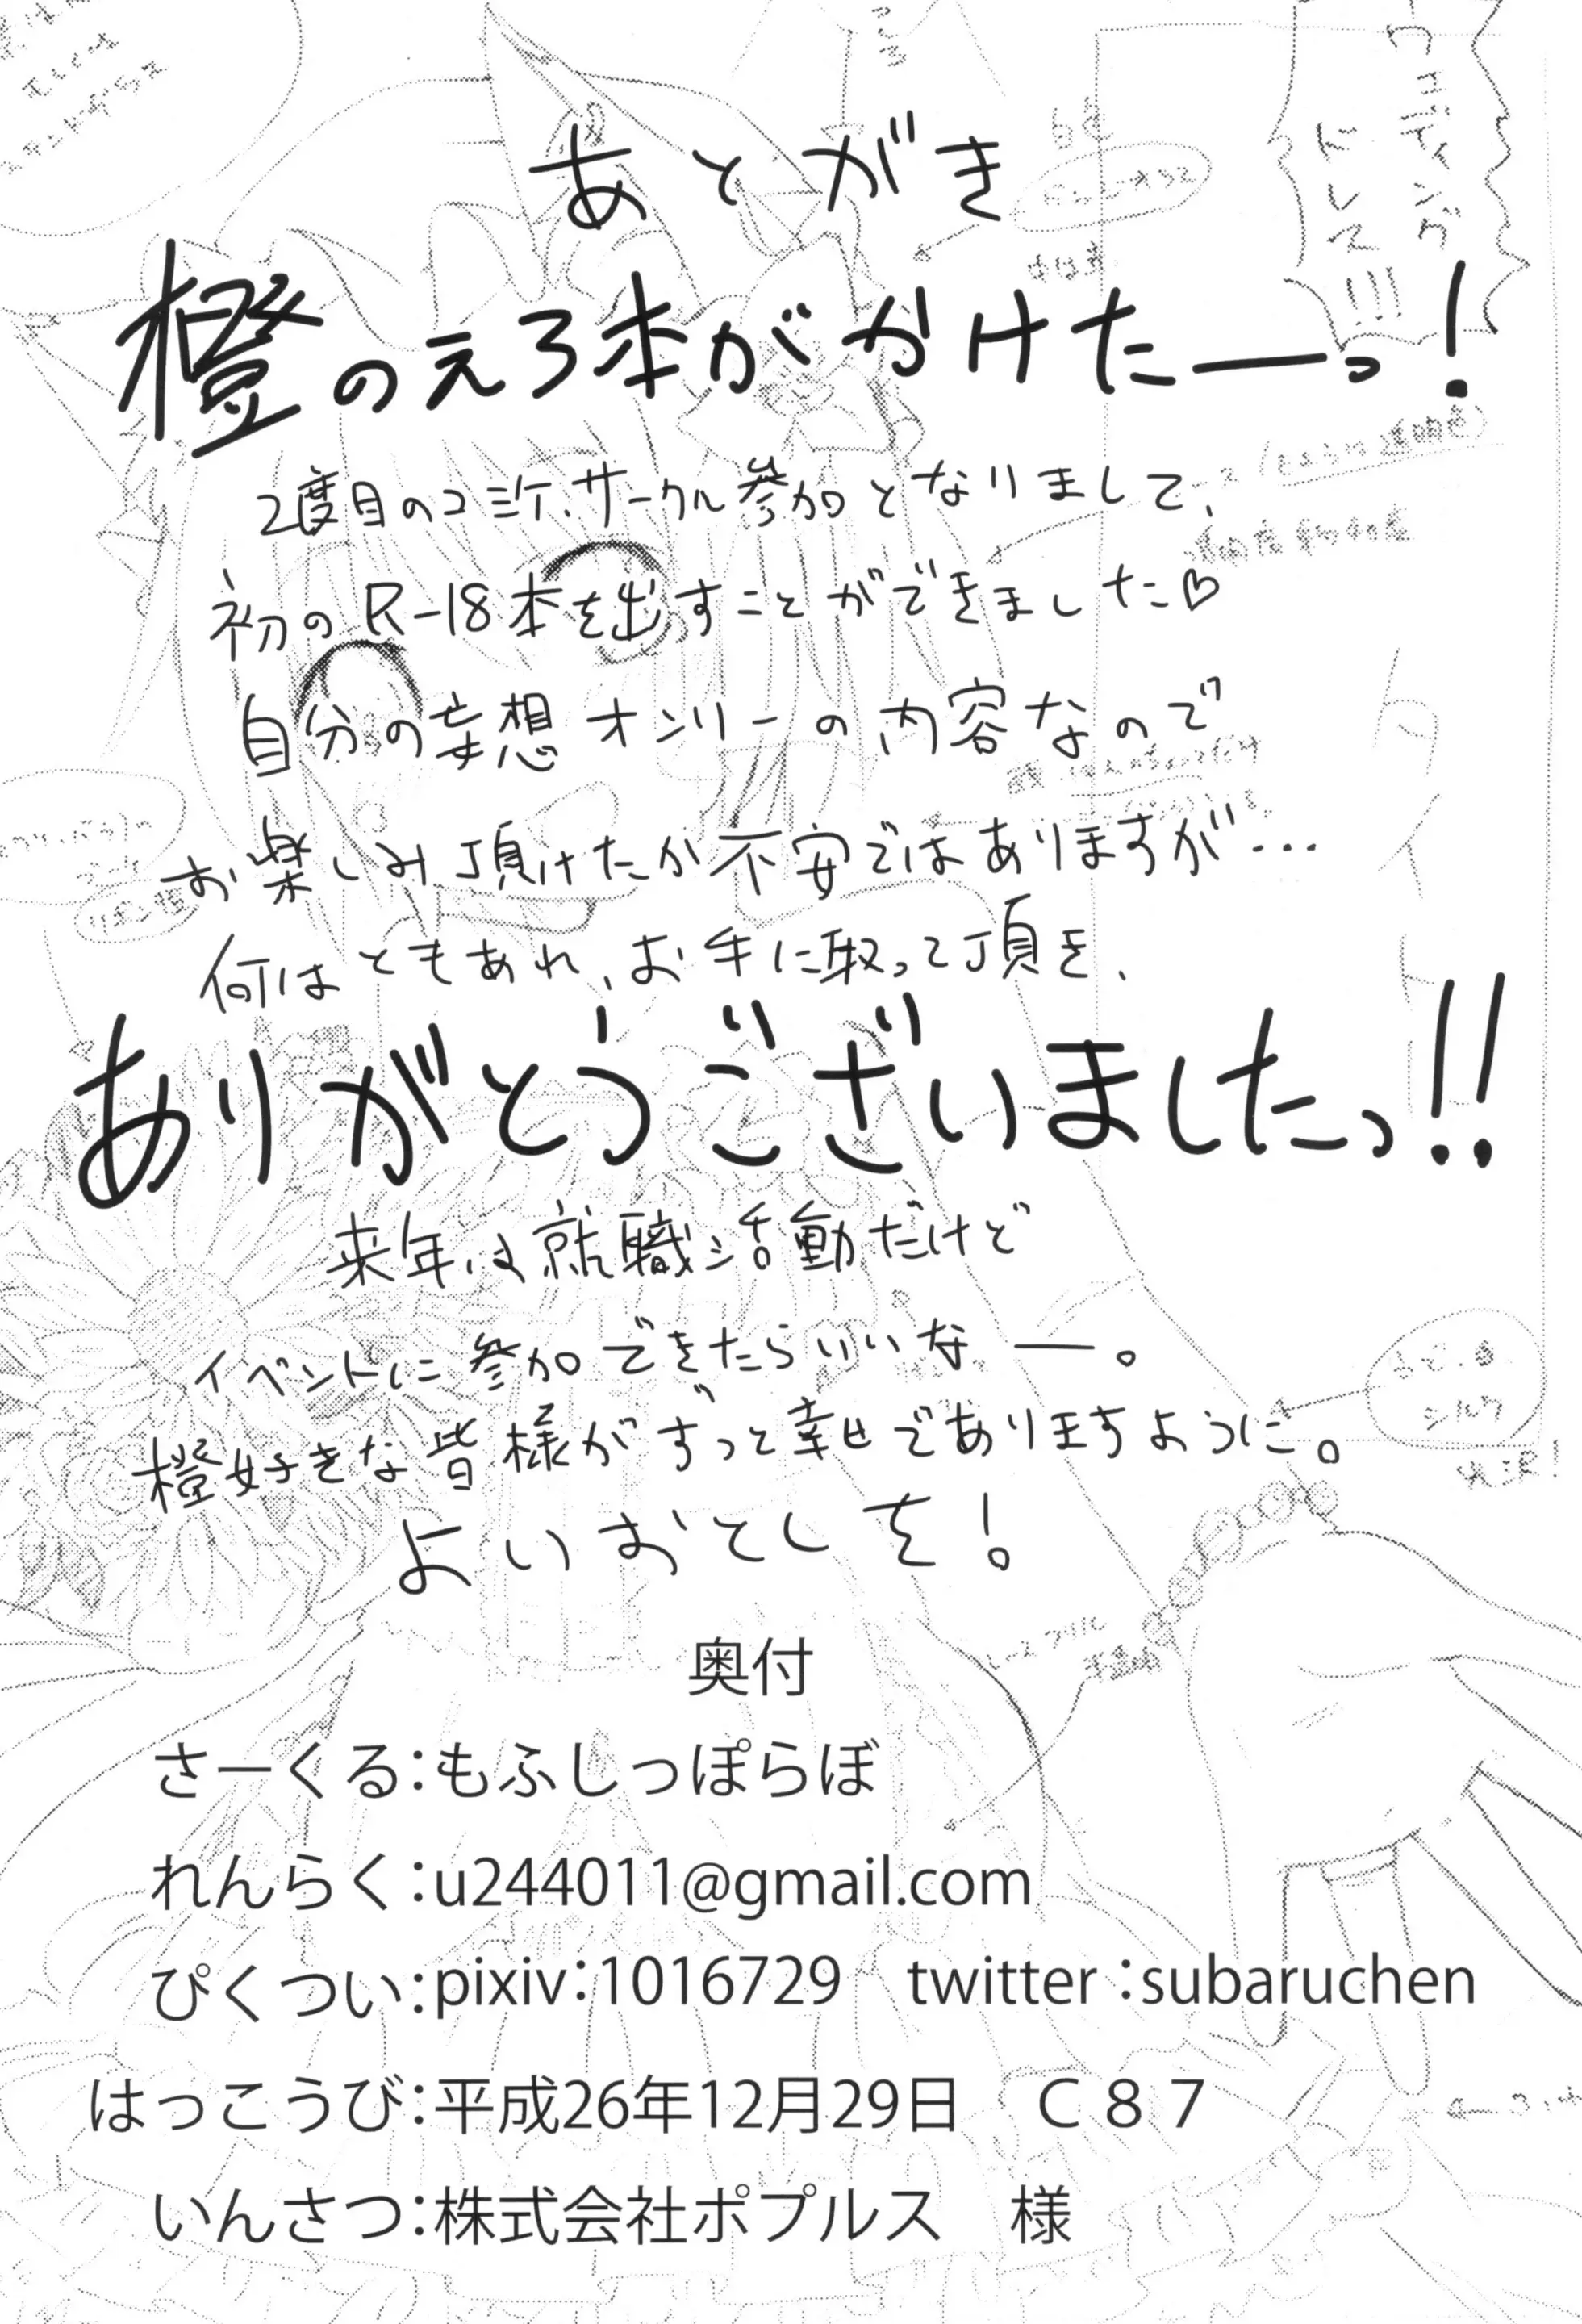 あとがき
橙のえろ本がかけたーっ!
2度目のコミケ、サークル参加となりまして、
初のR-18本を出すことができました♡
自分の妄想オンリーの内容なので
お楽しみ頂けたか不安ではありますが…
何はともあれ、お手に取って頂き、
ありがとうございましたっ!!
来年は就職活動だけど
イベントに参加できたらいいなー。
橙好きな皆様がずっと幸せでありますように。
よいおとしを!
奥付
さーくる:もふしっぽらぼ
れんらく:u244011@gmail.com
ぴくつい:pixiv:1016729 twitter:subaruchen
はっこうび:平成26年12月29日 C87
いんさつ:株式会社ポプルス 様
ウェディング
ドレス!!!
リボン